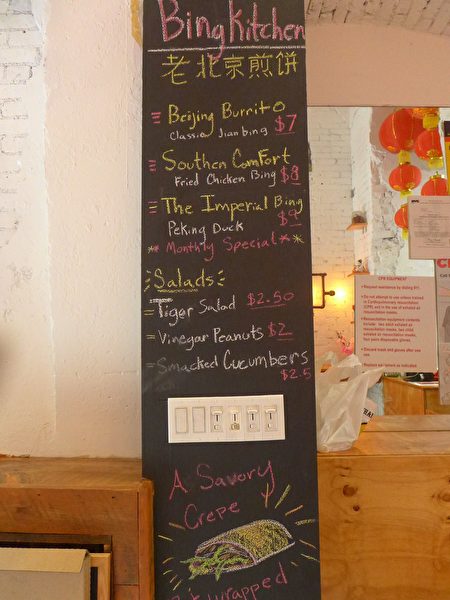 Bing Kitchen
老北京煎饼
Beijing Burrito
Classic Jianbing $7
Southen Comfort
Fried Chicken Bing $8
The Imperial Bing
Peking Duck $9
** Monthly Special **
Salads:
Tiger Salad $2.50
Vinegar Peanuts $2
Smacked Cucumbers
$2.5
A Savory
Crepe
wrapped
CPR EQUIPMENT